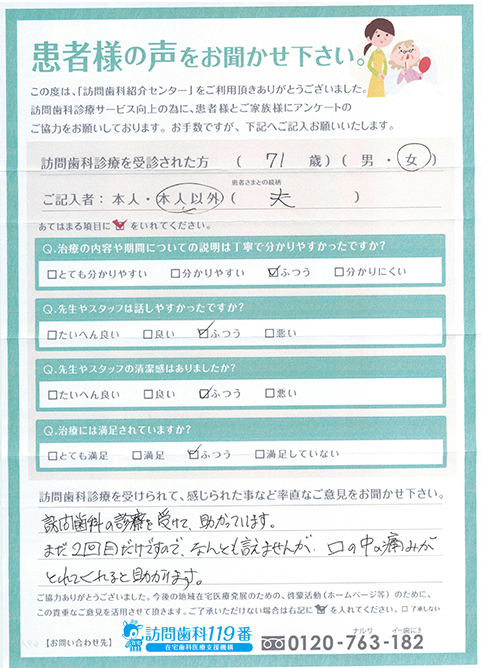 患者様の声をお聞かせ下さい。
この度は、「訪問歯科紹介センター」をご利用頂きありがとうございました。
訪問歯科診療サービス向上の為に、患者様とご家族様にアンケートの
ご協力をお願いしております。お手数ですが、下記へご記入お願いいたします。
訪問歯科診療を受診された方 ( 71 歳) ( 男 ・ 女 )
患者さまとの続柄
ご記入者: 本人・本人以外 ( 夫 )
あてはまる項目に☑をいれてください。
Q.治療の内容や期間についての説明は丁寧で分かりやすかったですか?
□とても分かりやすい □分かりやすい ☑ふつう □分かりにくい
Q.先生やスタッフは話しやすかったですか?
□たいへん良い □良い ☑ふつう □悪い
Q.先生やスタッフの清潔感はありましたか?
□たいへん良い □良い ☑ふつう □悪い
Q.治療には満足されていますか?
□とても満足 □満足 ☑ふつう □満足していない
訪問歯科診療を受けられて、感じられた事など率直なご意見をお聞かせ下さい。
訪問歯科の診療を受けて、助かっています。
まだ2回目だけですので、なんとも言えませんが、口の中の痛みが
とれてくれると助かります。
ご協力ありがとうございました。今後の地域在宅医療発展のための、啓蒙活動(ホームページ等)のために、
この貴重なご意見を活用させて頂きます。ご了承いただけない場合は右記に☑を入れてください。□了承しない
【お問い合わせ先】 訪問歯科119番
在宅歯科医療支援機構
ナルサ イー歯に!
0120-763-182